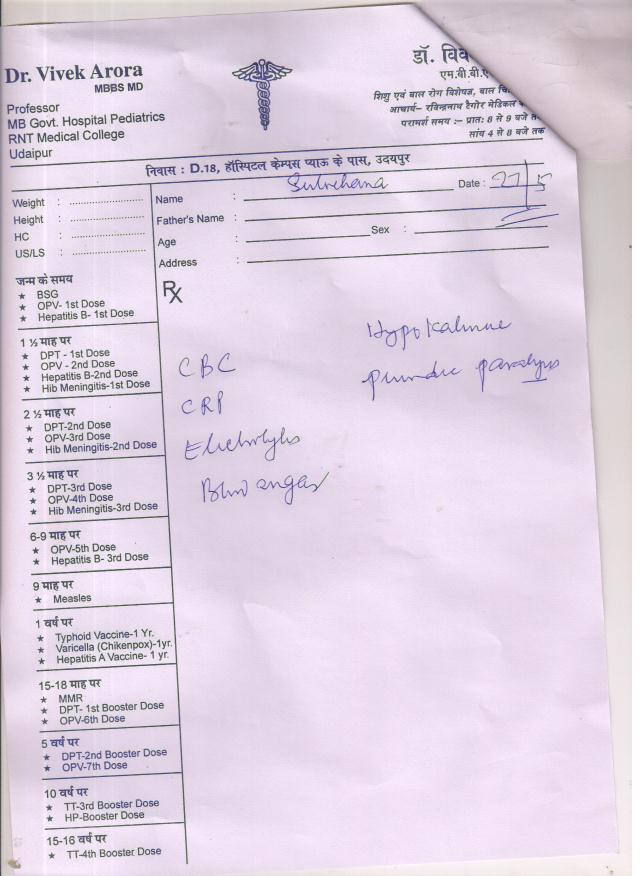 Dr. Vivek Arora
MBBS MD
Professor
MB Govt. Hospital Pediatrics
RNT Medical College
Udaipur
डॉ. विव
एम.बी.बी.ए
शिशु एवं बाल रोग विशेषज्ञ, बाल चि
आचार्य– रविन्द्रनाथ टैगोर मेडिकल
परामर्श समय :– प्रातः 8 से 9 बजे त
सांय 4 से 8 बजे तक
निवास : D.18, हॉस्पिटल केम्पस प्याऊ के पास, उदयपुर
Weight :
Height :
HC :
US/LS :
Name : Sulochana Date : 27/5
Father's Name :
Age : Sex :
Address :
Rx
जन्म के समय
★ BSG
★ OPV- 1st Dose
★ Hepatitis B- 1st Dose
1 ½ माह पर
★ DPT - 1st Dose
★ OPV - 2nd Dose
★ Hepatitis B-2nd Dose
★ Hib Meningitis-1st Dose
2 ½ माह पर
★ DPT-2nd Dose
★ OPV-3rd Dose
★ Hib Meningitis-2nd Dose
3 ½ माह पर
★ DPT-3rd Dose
★ OPV-4th Dose
★ Hib Meningitis-3rd Dose
6-9 माह पर
★ OPV-5th Dose
★ Hepatitis B- 3rd Dose
9 माह पर
★ Measles
1 वर्ष पर
★ Typhoid Vaccine-1 Yr.
★ Varicella (Chikenpox)-1yr.
★ Hepatitis A Vaccine- 1 yr.
15-18 माह पर
★ MMR
★ DPT- 1st Booster Dose
★ OPV-6th Dose
5 वर्ष पर
★ DPT-2nd Booster Dose
★ OPV-7th Dose
10 वर्ष पर
★ TT-3rd Booster Dose
★ HP-Booster Dose
15-16 वर्ष पर
★ TT-4th Booster Dose
CBC
CRP
Electrolytes
Blood sugar
Hypokalmic
periodic paralysis